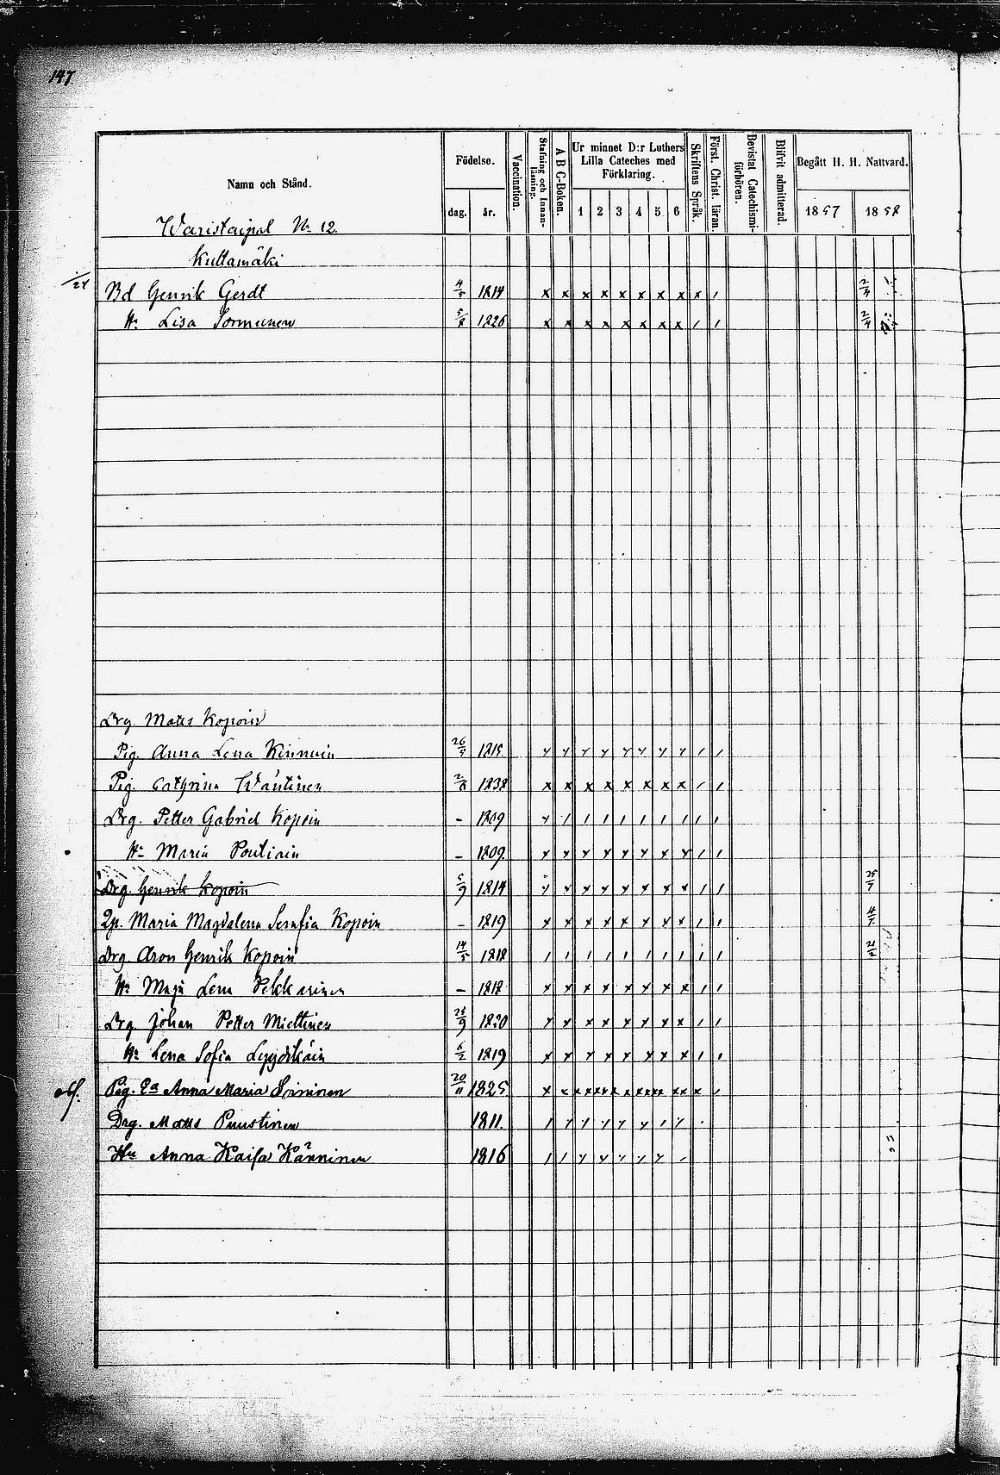 147
Namn och Stånd.
Födelse.
dag.
år.
Vaccination.
Stafning och Innanläsning.
A B C-Boken.
Ur minnet D:r Luthers Lilla Cateches med Förklaring.
1 2 3 4 5 6
Skriftens Språk.
Först. Christ. läran.
Bevistat Catechismiförhören.
Blifvit admitterad.
Begått H. H. Nattvard.
1857 1858
Waristaipal No 12
Kuttamäki
Bd Henrik Gerdt 4/5 1814 x x x x x x x x x / 2/4
H: Lisa Sormunen 5/8 1826 x x x x x x x x / / 2/4
Drg Matts Kopoin
Pig. Anna Lena Kinnuin 26/5 1815
Pig. Cathrina Wäntinen 1838 x x x x x x x x / /
Drg. Petter Gabriel Kopoin - 1809
H: Maria Poutiain - 1809
Drg. Henrik Kopoin 5/9 1814
Qp. Maria Magdalena Serafia Kopoin - 1819
Drg. Aron Henrik Kopoin 14/5 1818
H: Maja Lena Pekkarinen - 1818
Drg Johan Petter Miettinen 1820
H: Lena Sofia 6/2 1819
Pig. Anna Maria 20/11 1825
Drg. Matts Puustinen 1811
Hu Anna Kaisa Känninen 1816